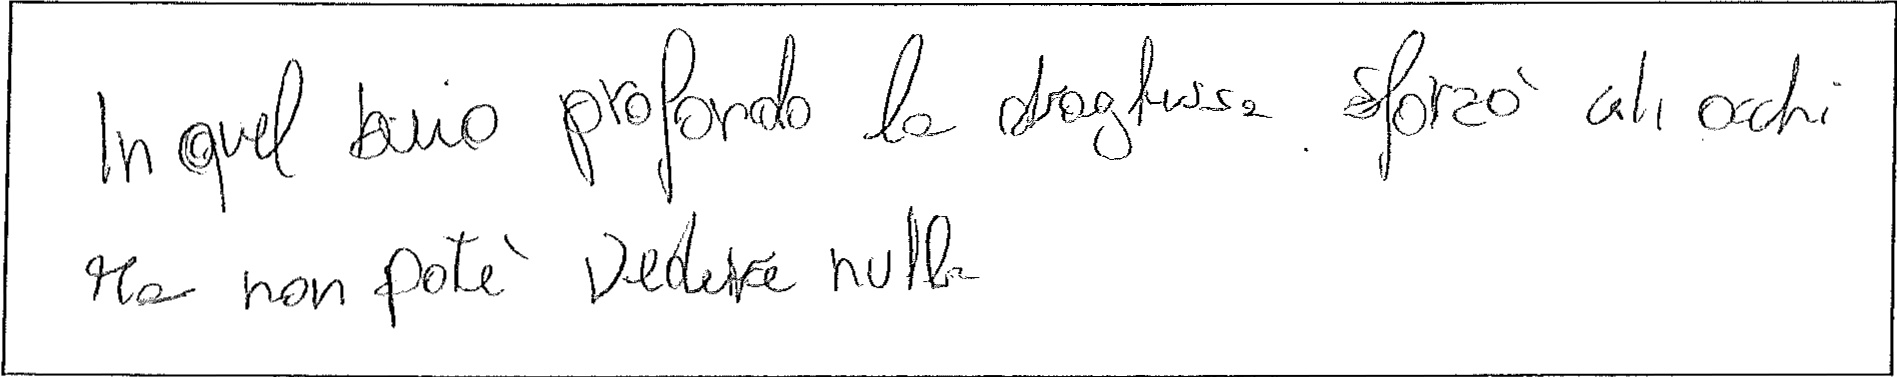 In quel buio profondo la draghessa sforzò gli occhi
Ma non potè vedere nulla